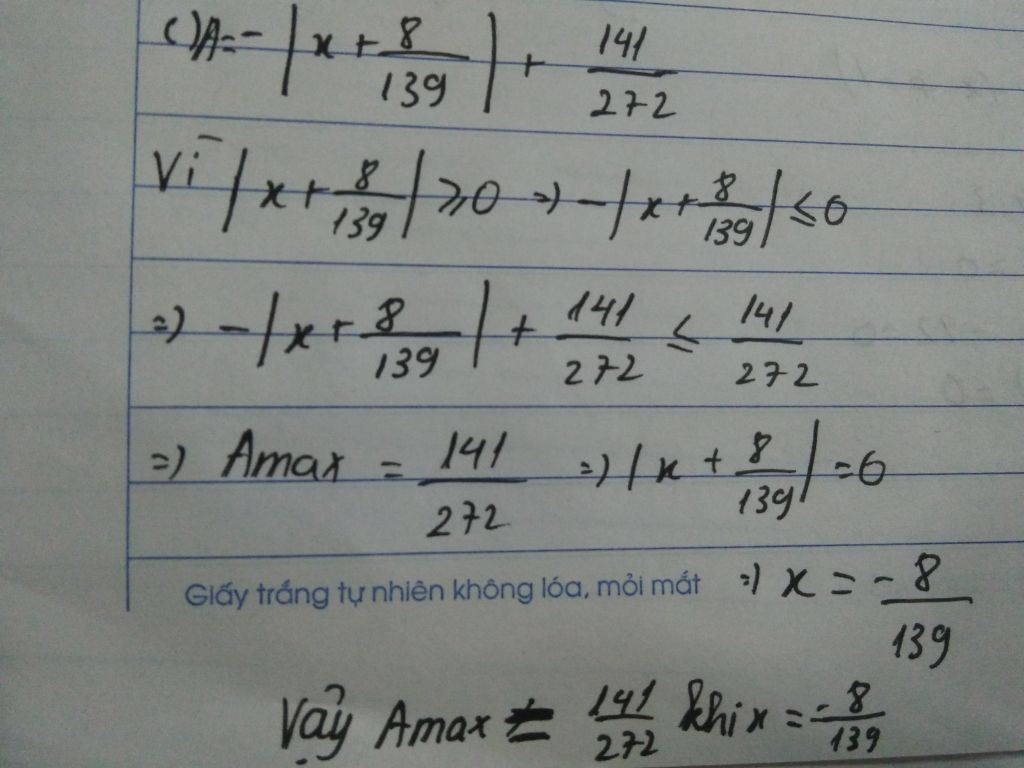 c) A = - | x + 8/139 | + 141/272
Vì | x + 8/139 | ≥ 0 => - | x + 8/139 | ≤ 0
=> - | x + 8/139 | + 141/272 ≤ 141/272
=> Amax = 141/272 => | x + 8/139 | = 0
Giấy trắng tự nhiên không lóa, mỏi mắt => x = - 8/139
Vậy Amax = 141/272 khi x = -8/139